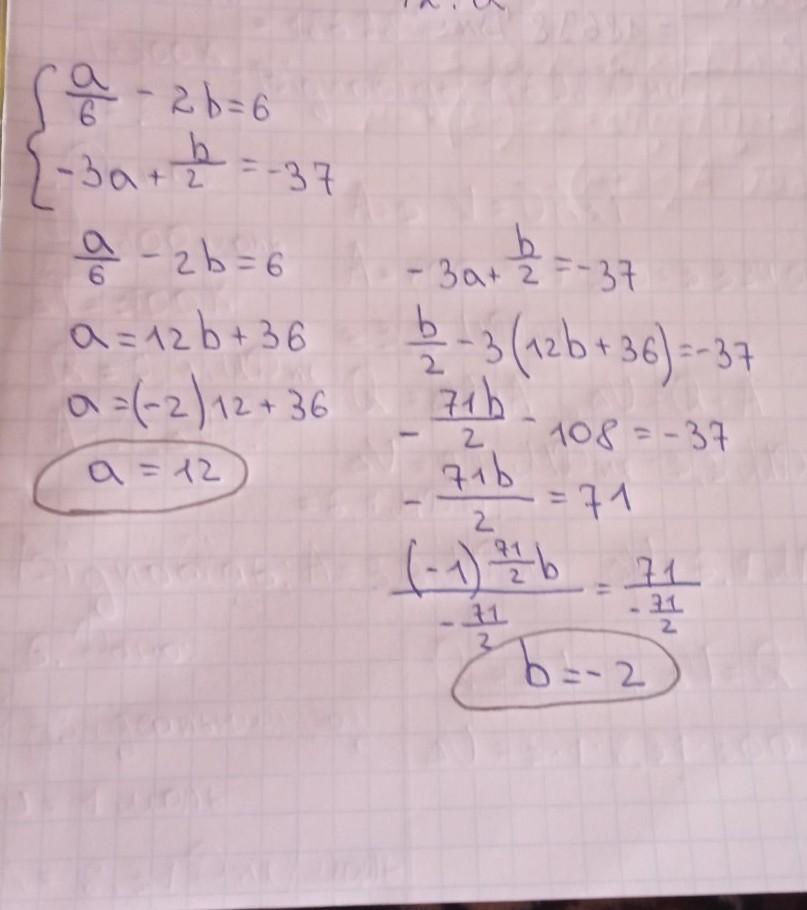 { a/6 - 2b = 6
-3a + b/2 = -37
a/6 - 2b = 6
a = 12b + 36
a = (-2)12 + 36
a = 12
-3a + b/2 = -37
b/2 - 3(12b + 36) = -37
- 71b/2 - 108 = -37
- 71b/2 = 71
(-1) 71/2 b / - 71/2 = 71 / - 71/2
b = -2